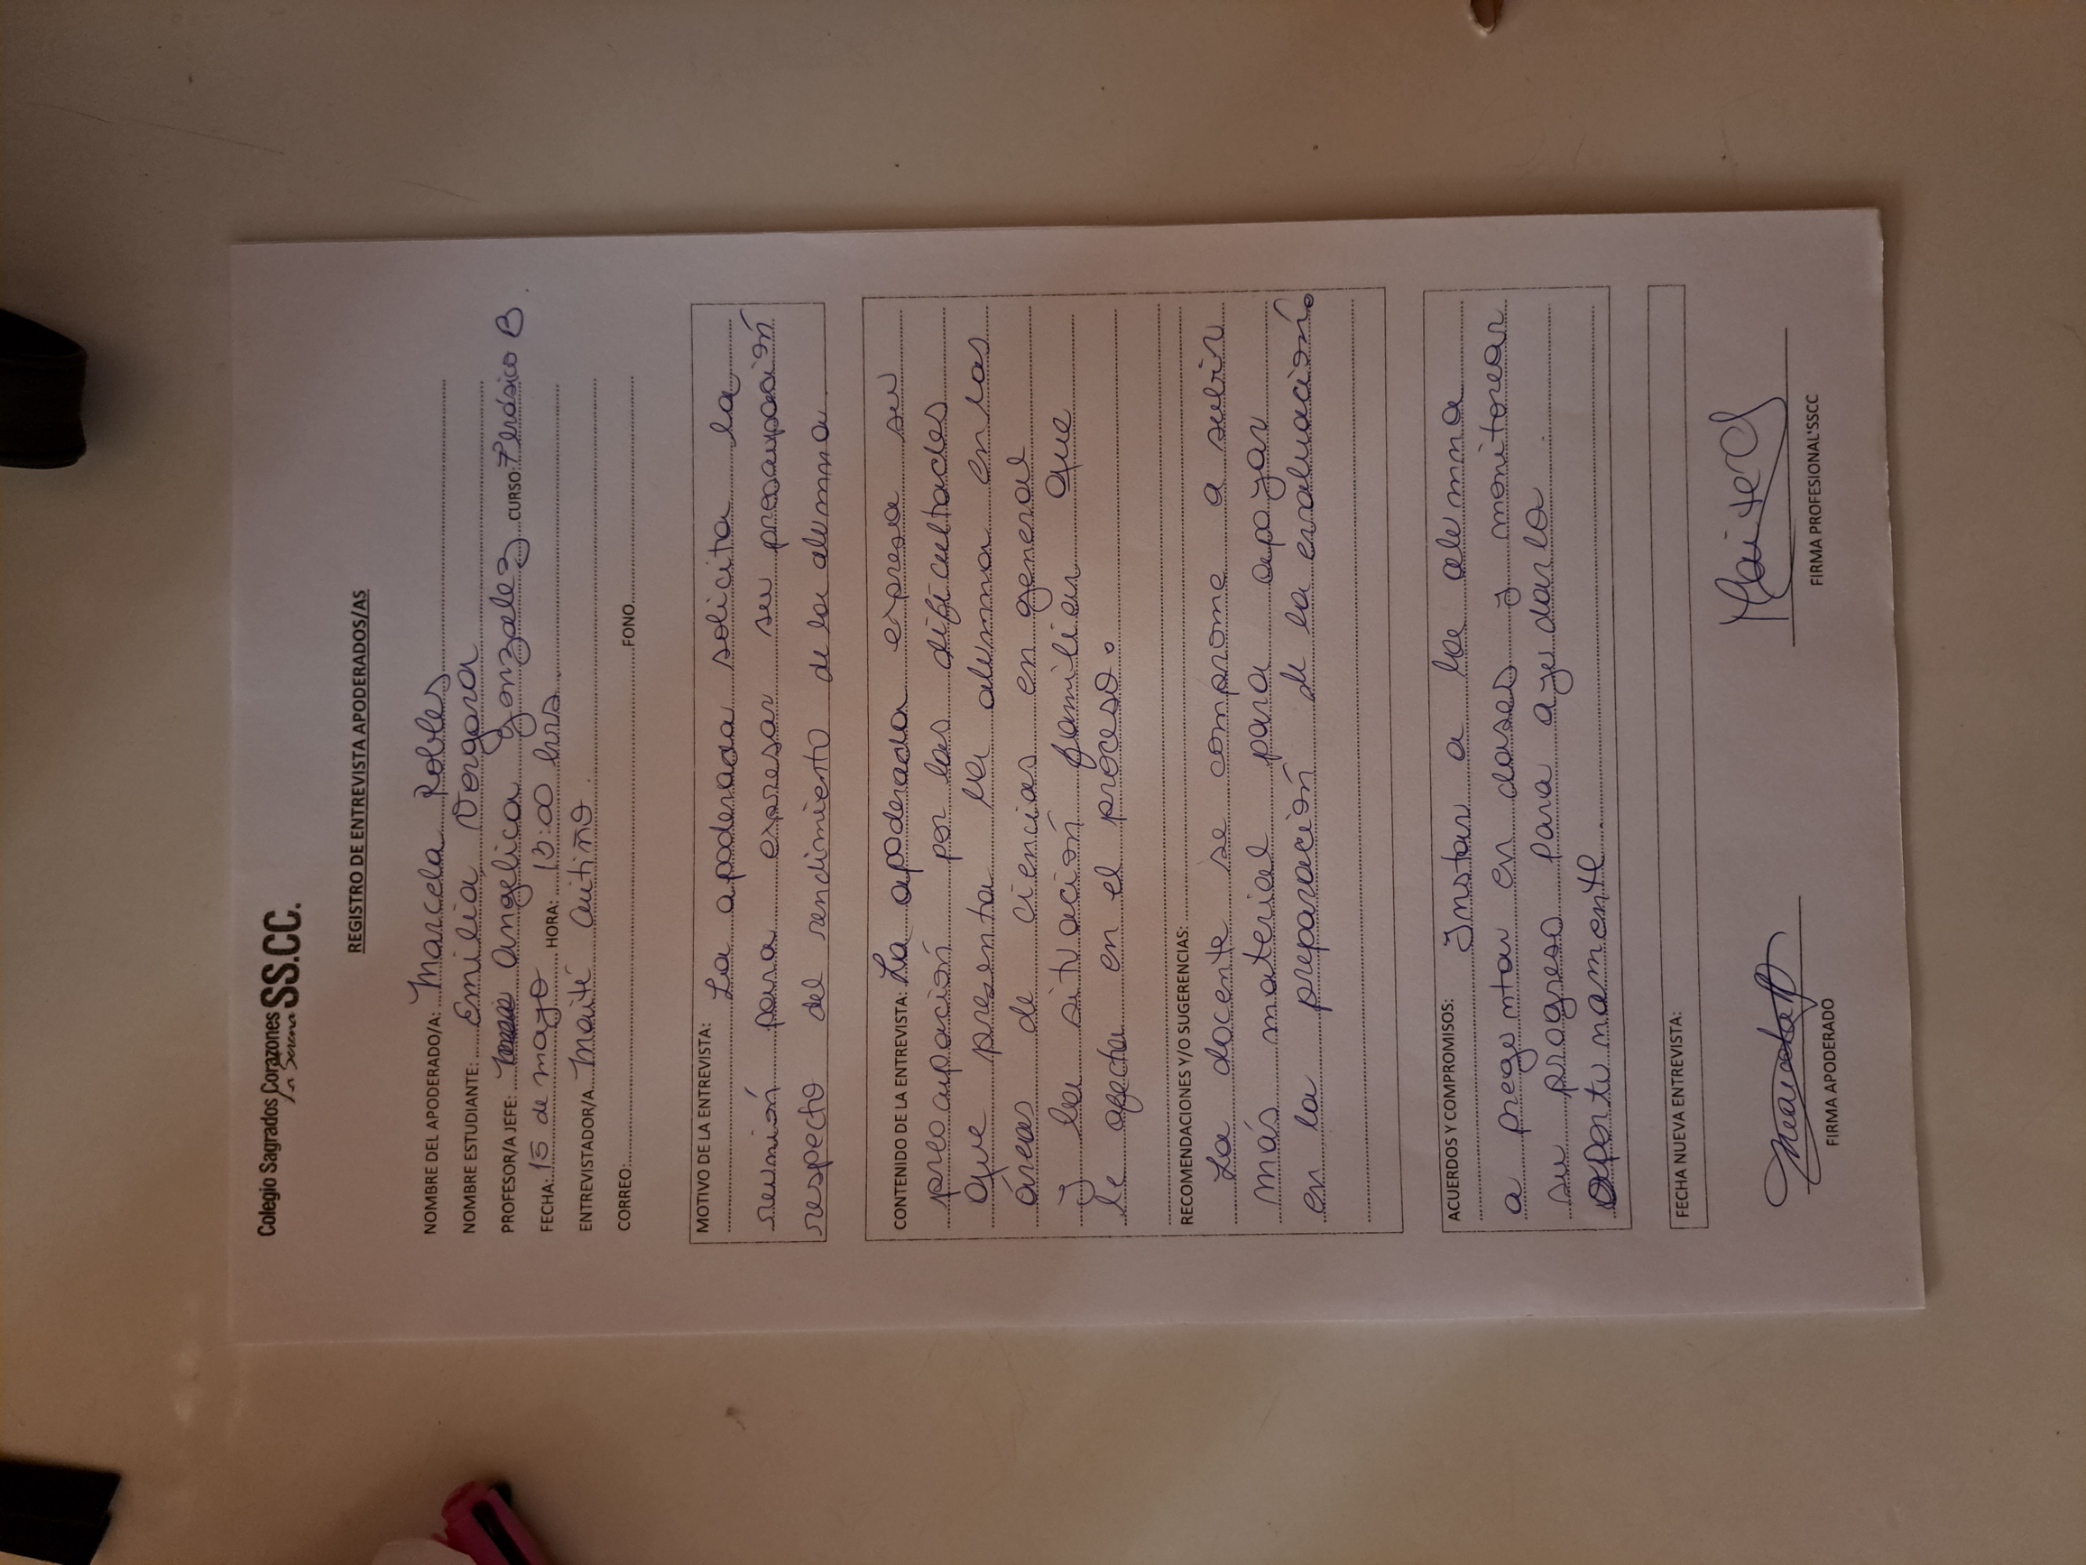 Colegio Sagrados Corazones SS.CC.
La Serena
REGISTRO DE ENTREVISTA APODERADOS/AS
NOMBRE DEL APODERADO/A: Marcela Robles
NOMBRE ESTUDIANTE: Emilia Vergara
PROFESOR/A JEFE: Angelica Gonzalez CURSO: 7º Básico B.
FECHA: 15 de mayo HORA: 13:00 hrs.
ENTREVISTADOR/A Maité
CORREO: FONO
MOTIVO DE LA ENTREVISTA:
La apoderada solicita la
reunión para expresar su preocupación
respecto del rendimiento de la alumna
CONTENIDO DE LA ENTREVISTA: La apoderada expresa su
preocupación por las dificultades
que presenta la alumna en las
áreas de ciencias en general
y la situación familiar que
le afecta en el proceso.
RECOMENDACIONES Y/O SUGERENCIAS:
La docente se comprome a subir
más material para apoyar
en la preparación de la evaluación.
ACUERDOS Y COMPROMISOS: Instar a la alumna
a preguntar en clases y monitorear
su progreso para ayudarla
oportunamente.
FECHA NUEVA ENTREVISTA:
FIRMA APODERADO
FIRMA PROFESIONAL SSCC